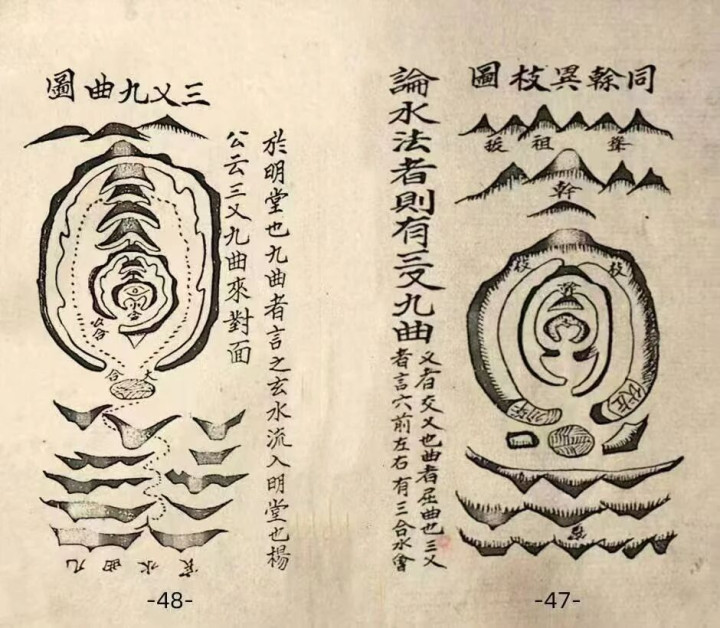 同榦異枝圖
祖
榦
枝
枝
論水法者則有三叉九曲
叉者交叉也曲者屈曲也三叉
者言穴前左右有三合水會
於明堂也九曲者言之玄水流入明堂也楊
公云三叉九曲來對面
三叉九曲圖
大合
九曲水
-48-
-47-